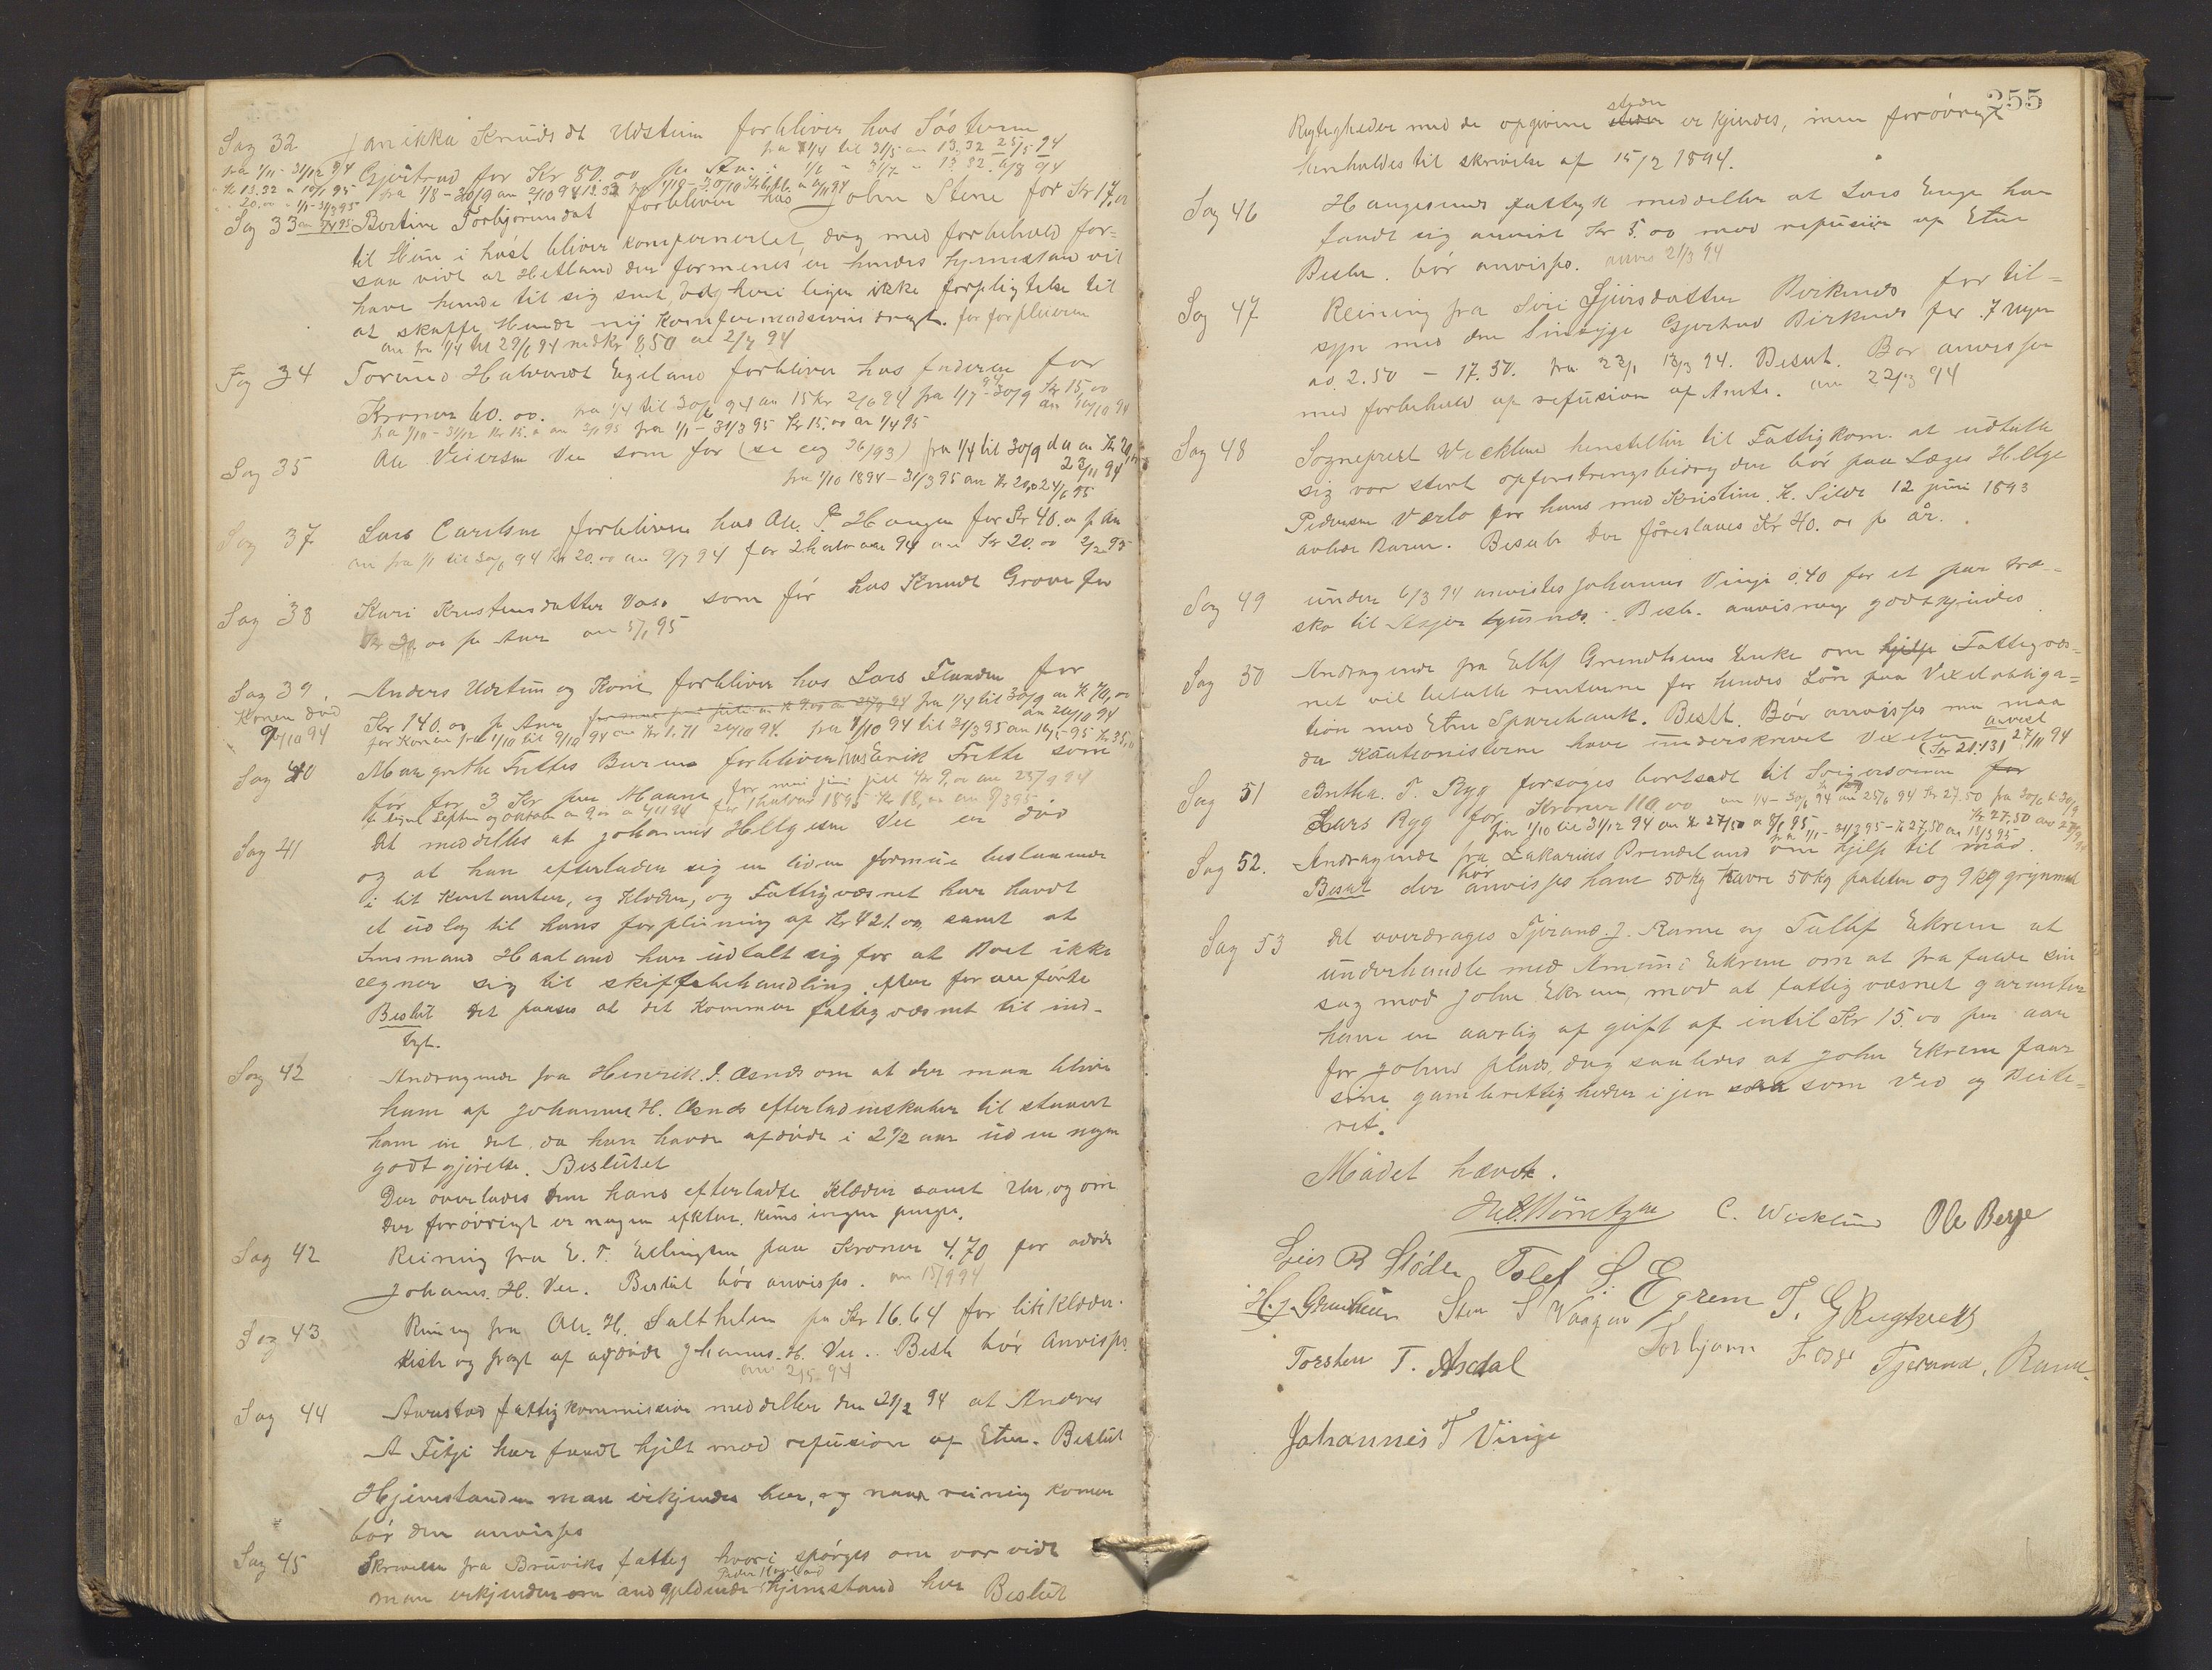 Sag 32 Janikka Knuds dt Udstuen forbliver hos Søsteren
fra 1/4 til 31/5 an 13,32 25/5 94
Gjertrud for Kr 80.00 pr Aar.
fra 1/11 - 31/12 94
Kr 13.32 a 10/1 95 fra 1/8 - 30/9 an 2/10 94 13.32
20.00 1/1 - 31/3 95
Sag 33 Bertine Torbjørnsdat forbliver hos John Stene for Kr 17.00
til Hun i høst bliver konfermertet, dog med forbehold for=
saa vidt at Hetland der formenes er hendes hjemstavn vil
have hende til sig snt, og heri ligger ikke forpligtelse til
at skaffe Hende ny Konfermadsions dragt. for forpleiven
an fra 1/4 til 29/6 94 med Kr 8,50 at 2/7 94
Sag 34 Torund Halvordt Egeland forbliver hos faderen for
Kroner 60.00. fra 1/4 til 30/6 94 an 15 Kr 2/6 94 fra 1/7 - 30/9 Kr 15,00
an 10/10 94
fra 1/10 - 31/12 Kr 15.00 an 2/1 95 fra 1/1 - 31/3 95 Kr 15.00 an 1/4 95
Sag 35 Ole Veiersen Vee som før (se sag 36/93) fra 1/4 til 30/9 d a an Kr 20,00
23/11 94
fra 1/10 1894 - 31/3 95 an Kr 20,0 24/6 95
Sag 37 Lars Carelsen forblivere hos Ole P Haugen for Kr 40.00 p An
an fra 1/1 til 30/6 94 Kr 20.00 an 9/7 94 for 2 halvaar 94 an Kr 20.00 2/2 95
Sag 38 Kari Kristensdatter Vaso som før hos Knudt Grove for
Kr 20.00 pr Aar an 5/1 95
Sag 39. Anders Udstuen og Kone forbliver hos Lars Flunden for
Konen død
9/10 94
Kr 140.00 p Aar fra 1/4 til 30/9 an K 70,00
an 20/10 94
for Konen fra 1/10 til 9/10 94 an Kr 1.71 20/10 94. fra 1/10 94 til 31/3 95
Sag 40 Margrethe Frettes Barn forbliver hos Erik Frette som
før for 3 Kr per Maaned for mai juni juli Kr 9,00 an 25/9 94
Sag 41 Det meddelles at Johannes Helgesen Vee er død
og at han efterlader sig en liden formue bestaaende
i lit Kontanter, og Klæder, og Fattigvæsnet har havdt
et udlæg til hans forpleining af Kr 421.00, samt at
Lensmand Haaland har udtalt sig for at Boet ikke
egner sig til skiftebehandling. efter for anførte
Beslut det paases at det kommer fattigvæsnet til ind-
tegt.
Sag 42 Andragende fra Henrik. J. Osnes om at der maa blive
ham af Johannes H. Osnes efterladenskaber til staaet
ham en del, da han havde afdøde i 2 1/2 aar uden nogen
godtgjørelse. Beslutet
Der overlades ham hans efterladte Klæder samt Uhr, og om
der forøvrigt er nogen efekter, kuns ingen penger.
Sag 42 Reining fra E. T. Ellingsen paa Kroner 4.70 for afdøde
Johanes. H. Vee. Beslut bør anvises. an 15/9 94
Sag 43 Reining fra Ole. H. Salthelen pa Kr 16.64 for likklæder.
kiste og fragt af afdøde Johannes. H. Vee.. Besl. bør Anvises
anv 2/5 94
Sag 44 Aurestad fattigkommission meddeller den 21/2 94 at Andres
A Fitje har faadt hjelp mod refusion af Etne. Beslut
Hjemstanden maa erkjendes her, og naar reining komer
bør den anvises
Sag 45 Skrivelse fra Bruviks fattig hvori spørges om vor vidt
man erkjender om andgjeldende hjemstand her Beslut
255
Rigtigheden med de opgivene steder erkjendes, men forøvrigt
henholdes til skrivelse af 15/2 1894.
Sag 46 Haugesunds fattigk meddeller at Lars Enge har
faadt sig anvist Kr 5.00 mod refusion af Etne
Beslu. bør anvises. anvis 21/3 94
Sag 47 Reining fra Siri Sjursdatter Birkenes for til=
syn med den Sindsyge Gjertrud Birkenes for 7 uger
ad. 2.50 - 17.50. fra 23/1 13/3 94. Beslut. Bør anvises
med forbehold af refusion af Amte. an 22/3 94
Sag 48 Sogneprest Wecklund henstiller til Fattigkom. at udtalle
sig vor stort opfostringsbidrag der bør paa Lægges Helge
Pedersen Værlo for hans med Kristine. K. Silde 12 juni 1893
avlede Barn. Beslut Der føreslaaes Kr 40.00 pr år.
Sag 49 under 6/3 94 anvistes Johannes Vinje 0.40 for et par træ-
sko til Asgjer Lysnes. Besl. anvisning godtkjendes
Sag 50 Andragende fra Ellef Grindheims Enke om hjelp Fattigvæs-
net vil betalle renterne for hendes Lån paa Vexelobliga=
tion med Etne Sparebank. Beslt. Bør anvises men maa
da Kautionisterne have underskrevet Vexelen anvist
(Kr 20.13) 27/11 94
Sag 51 Britha. T. Ryg forsøges bortsadt til Svigersønnen for
Lars Ryg for Kroner 110 00 an 1/4 - 30/6 94 an 25/6 94 Kr 27.50 fra 30/6 t. 30/9
Kr 27,50 an
fra 1/10 til 31/12 94 an Kr 27/50 a 8/1 95 fra 1/1 - 31/3 95 - Kr 27,50 an 18/3 95
Sag 52. Andragende fra Zakarias Brendeland om hjelp til mad.
Beslut der bør anvises ham 50 kg Havre 50 kg poteter og 9 kg grynmel
Sag 53 Det overdrages Tjerand. J. Rame og Tollef Ekrem at
underhandle med Amund Ekrem om at fra falde sin
sag mod John Ekrem, mod at fattigvæsnet garanter
ham en aarlig afgift af intil Kr 15.00 per aar
for Johns plads, dog saaledes at John Ekrem faar
sine gamle rettigheder igjen saa som Ved og Beite=
ret.
Mødet hævet.
C. Wecklund Ole Berge
Leis B Støden Tolef S. Egrem T. G Rygtvedt
H. J. Grindheim Sten S Vaage
Torsten T. Asdal Torbjørn Fosse Tjerand, Rame.
Johannes T Vinje